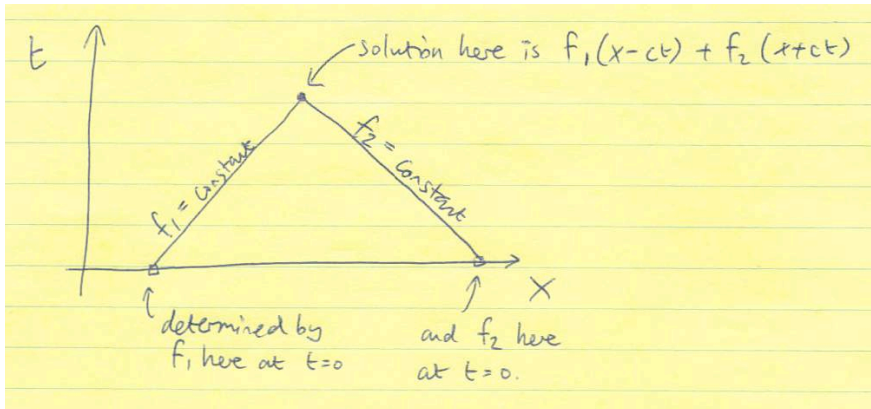 t
solution here is f₁(x-ct) + f₂(x+ct)
f₁ = constant
f₂ = constant
x
determined by
f₁ here at t=0
and f₂ here
at t=0.